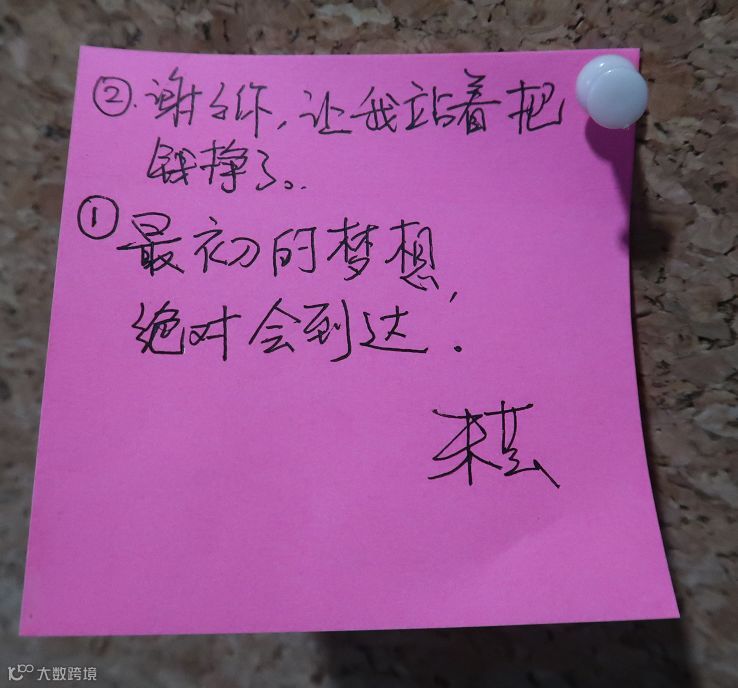 ②.谢谢你,让我站着把
钱挣了。
①最初的梦想,
绝对会到达!
大数跨境